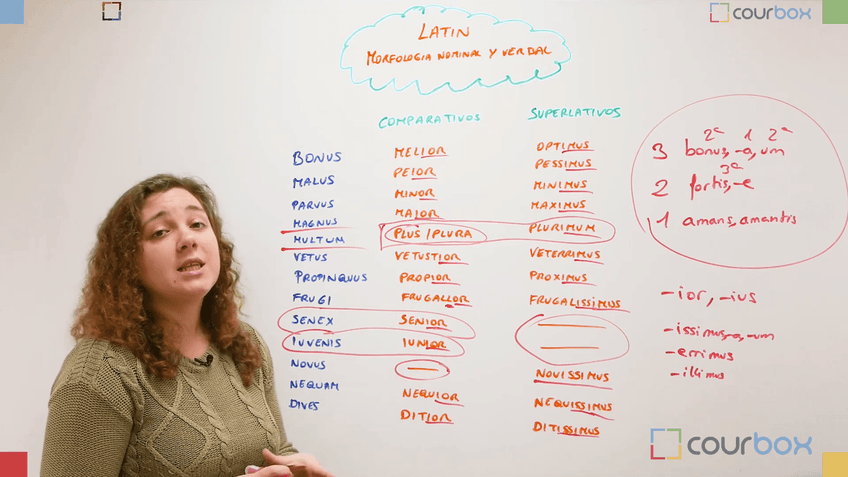 courbox
LATIN
MORFOLOGIA NOMINAL Y VERBAL
COMPARATIVOS SUPERLATIVOS
BONUS MELIOR OPTIMUS
MALUS PEIOR PESSIMUS
PARVUS MINOR MINIMUS
MAGNUS MAIOR MAXIMUS
MULTUM PLUS/PLURA PLURIMUM
VETUS VETUSTIOR VETERRIMUS
PROPINQUUS PROPIOR PROXIMUS
FRUGI FRUGALIOR FRUGALISSIMUS
SENEX SENIOR
IUVENIS IUNIOR
NOVUS NOVISSIMUS
NEQUAM NEQUIOR NEQUISSIMUS
DIVES DITIOR DITISSIMUS
2ª 1 2ª
3 bonus, -a, um
3ª
2 fortis, -e
1 amans, amantis
-ior, -ius
-issimus, -a, -um
-errimus
-illimus
courbox